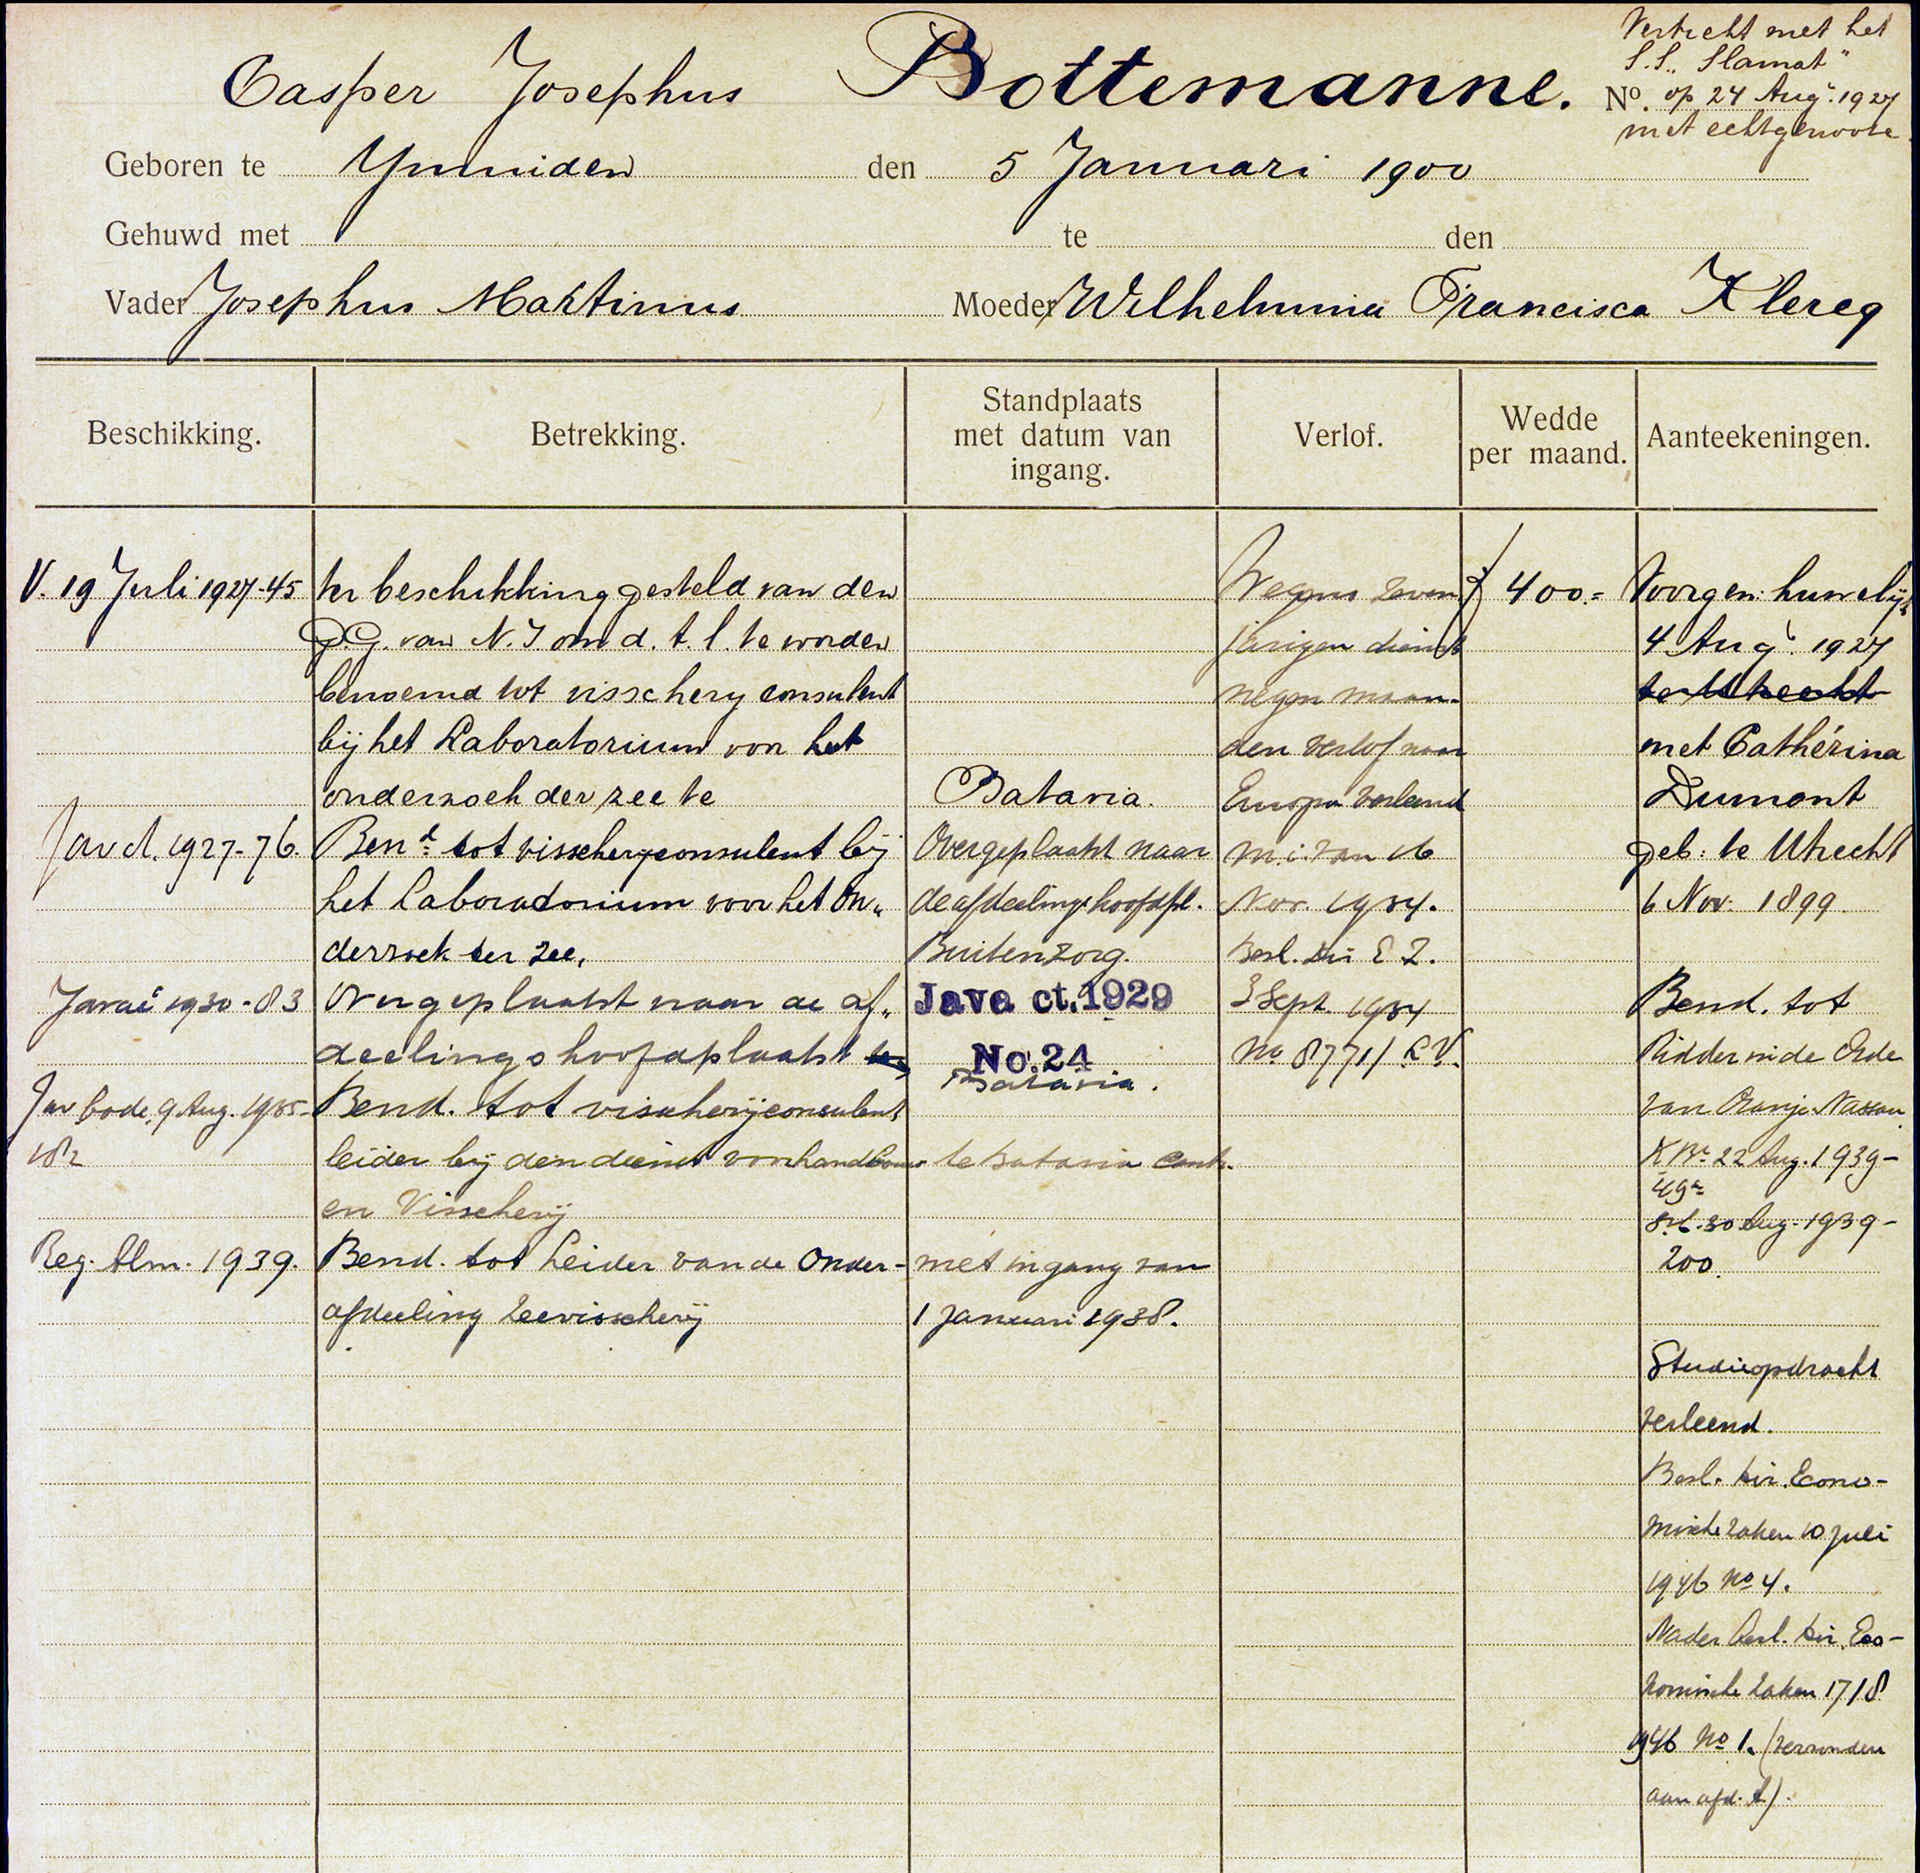 Vertrekt met het
S.S. „Slamat"
Casper Josephus Bottemanne.
No. op 24 Aug. 1927
met echtgenoote
Geboren te Ymuiden den 5 Januari 1900
Gehuwd met te den
Vader Josephus Martinus Moeder Wilhelmina Francisca Klercq
Beschikking.
Betrekking.
Standplaats
met datum van
ingang.
Verlof.
Wedde
per maand.
Aanteekeningen.
V. 19 Juli 1927-45
Jav ct. 1927-76.
Java ct 1930-83
Jav bode, 9 Aug. 1935-
182
Reg. Alm. 1939.
ter beschikking gesteld van den
G.G. van N.I om d. t. l. te worden
benoemd tot visschery consulent
bij het Laboratorium voor het
onderzoek der zee te
Bend: tot visscheryconsulent bij
het Laboratorium voor het On„
derzoek ter zee.
Overgeplaatst naar de af„
deelingshoofdplaatst te
Bend. tot visscherijconsulent
leider bij den dienst van Landbouw
en Visscherij
Bend. tot Leider van de Onder-
afdeeling Zeevisscherij
Batavia.
Overgeplaatst naar
de afdeelingshoofdpl.
Buitenzorg.
Java ct. 1929
No. 24
Batavia.
te Batavia Centr.
met ingang van
1 Januari 1938.
Wegens zeven
jarigen dienst
negen maan-
den verlof naar
Europa verleend
m.i. van 16
Nov. 1934.
Besl. Dir E Z.
3 Sept. 1934
No 8771/ L.V.
400.=
Voorgen: huwelijk
4 Aug. 1927
te Utrecht
met Cathérina
Dumont
geb: te Utrecht
6 Nov. 1899.
Bend. tot
Ridder in de Orde
van Oranje Nassau
K.Bt. 22 Aug. 1939-
49
St.ct. 30 Aug. 1939-
200.
Studieopdracht
verleend.
Besl. Dir. Econo-
mische Zaken 10 Juli
1946 No 4.
Nader Besl. Dir. Eco-
nomische Zaken 17/8
1946 No 1. (verzonden
aan afd. A).